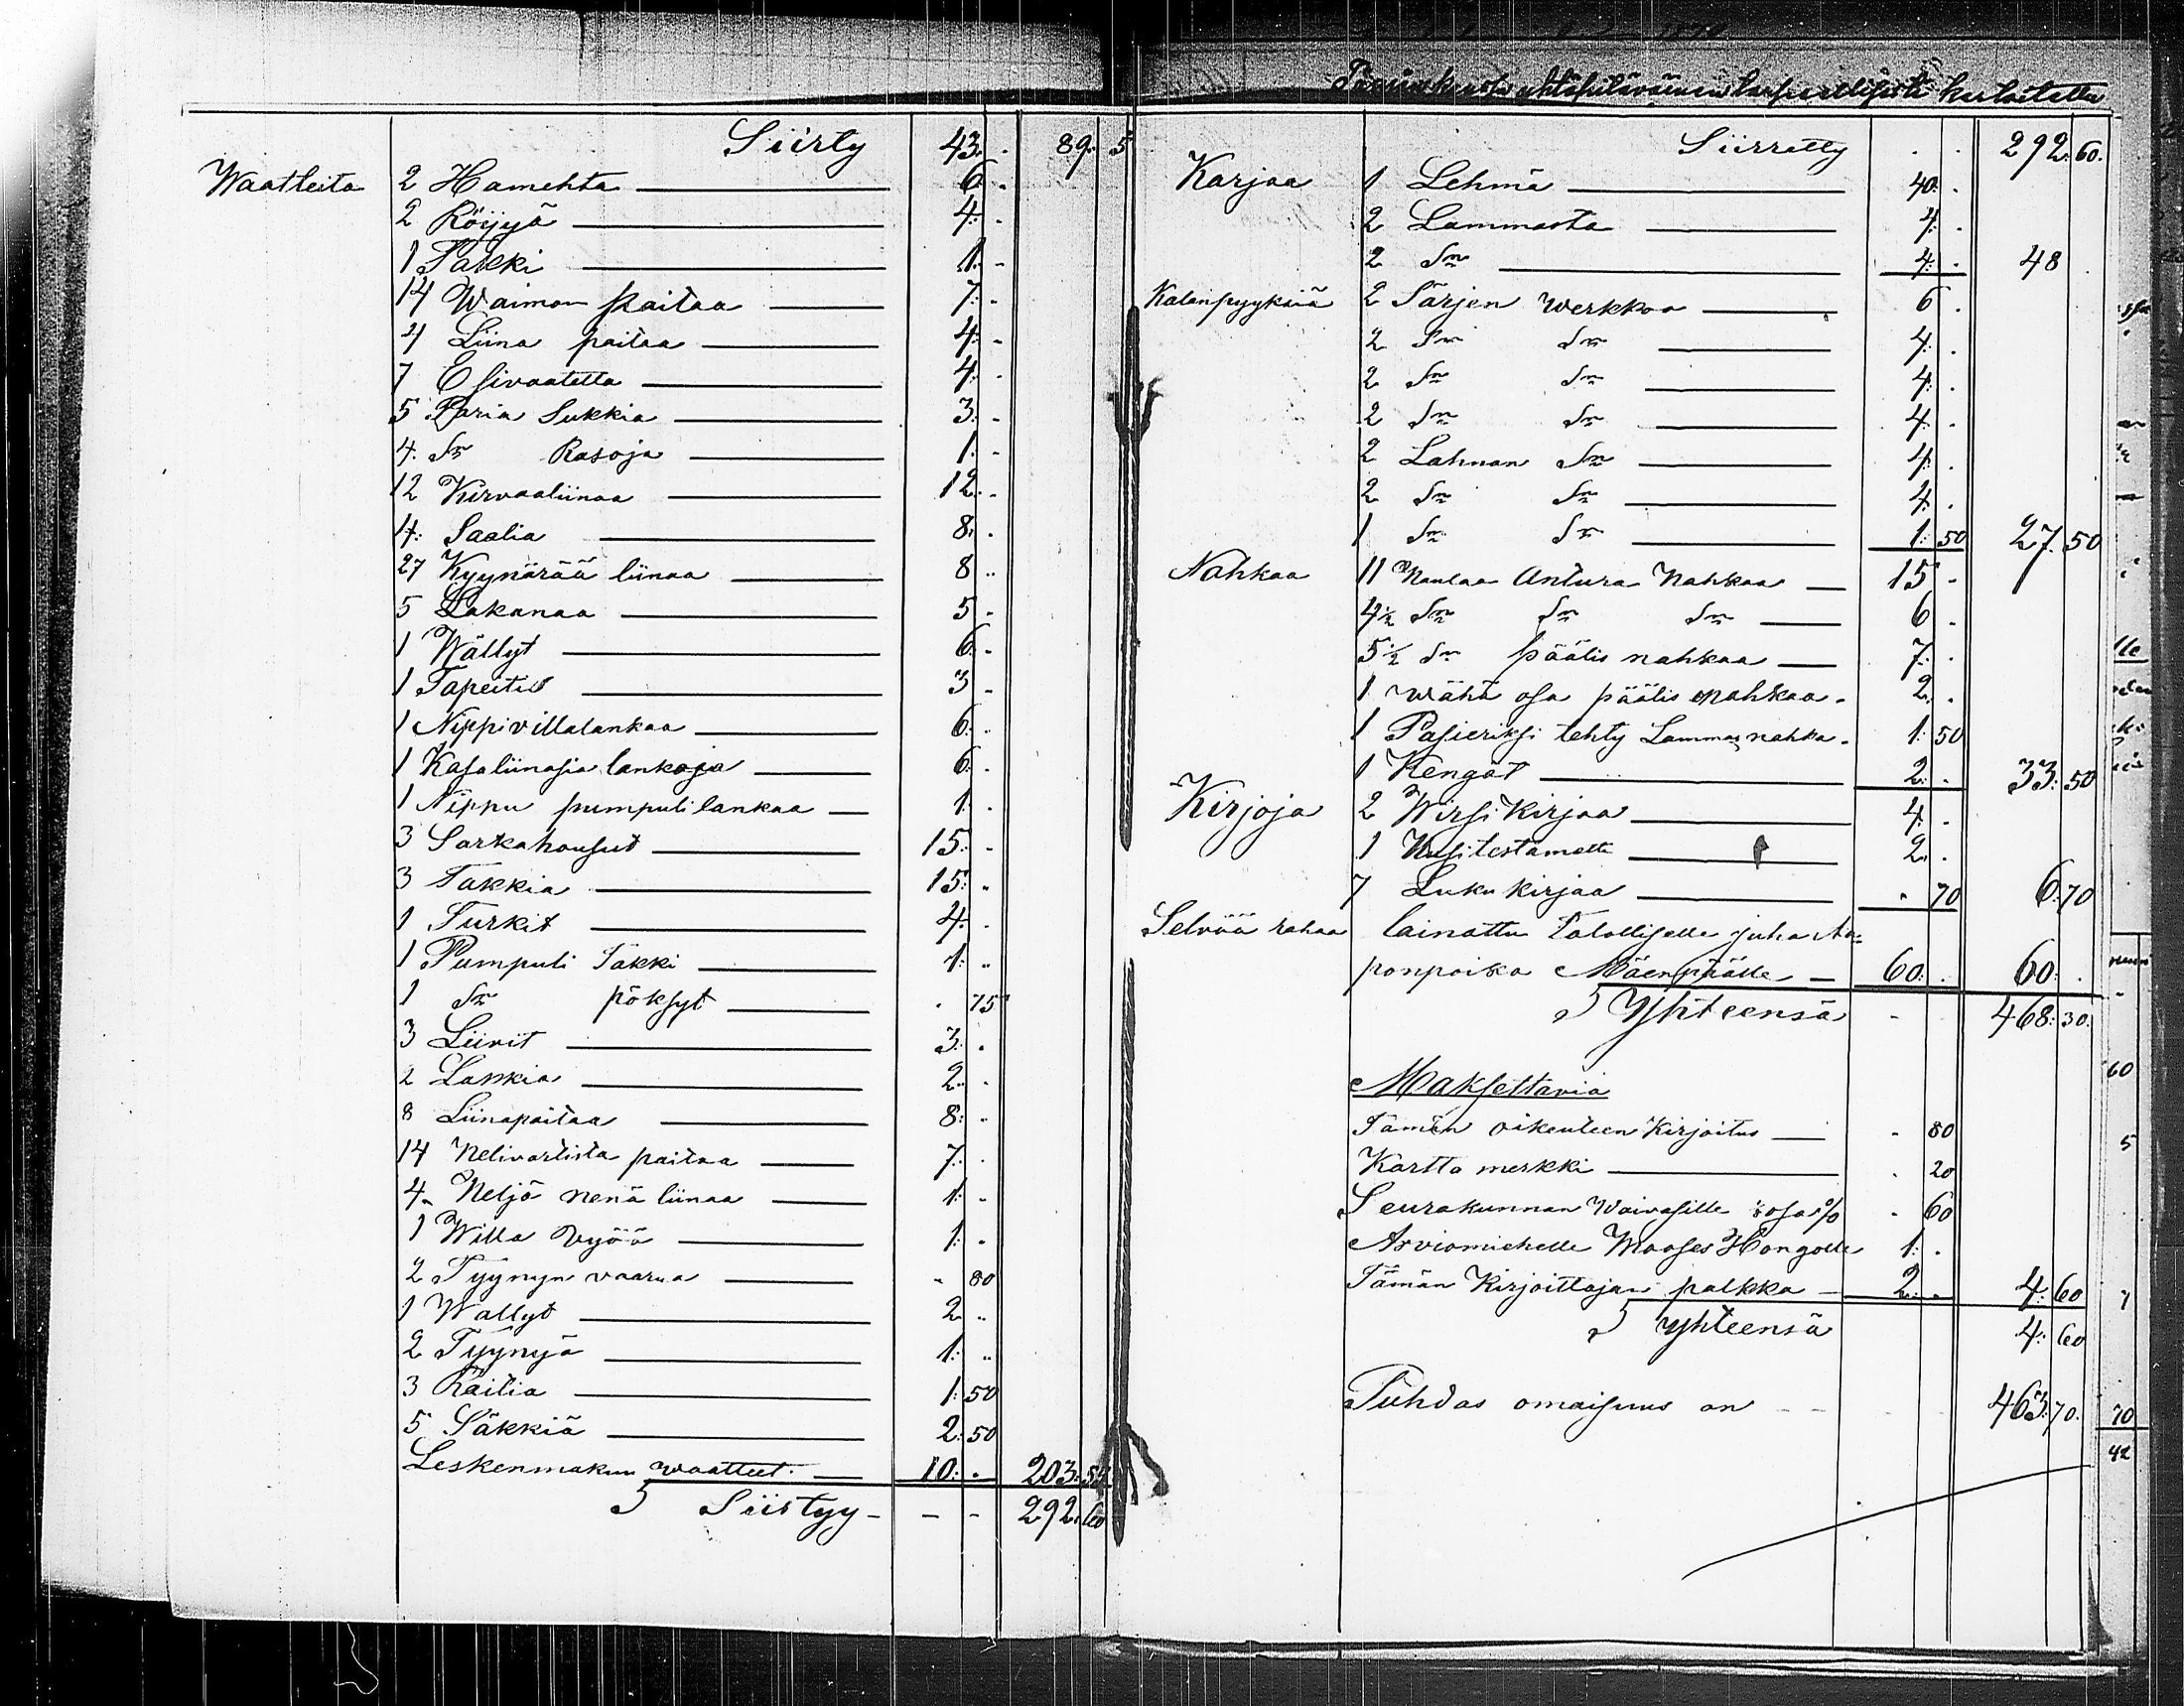 Siirty 43. . 89. 5
Waatteita 2 Hamehta 6. .
2 Röijyä 4: .
1 Takki 1: .
14 Waimon paitaa 7: .
4 Liina paitaa 4: .
7 Esivaatetta 4: .
5 Paria Sukkia 3: .
4. Dn Rasoja 1: .
12 Kirvaaliinaa 12: .
4: Saalia 8: .
27 Kyynärää liinaa 8 ..
5 Lakanaa 5 .
1 Wällyt 6: .
1 Tapeitti 3 .
1 Nippi villalankaa 6: .
1 Kasaliinasia lankoja 6: .
1 Nippu pumpuli lankaa 1: .
3 Sarkahousut 15: .
3 Takkia 15: .
1 Turkit 4. .
1 Pumpuli Takki 1: ..
1 Dn pöksyt . 75
3 Liivit 3: .
2 Lakkia 2: .
8 Liinapaitaa 8: .
14 Nelivartista paitaa 7: .
4. Neljä nenä liinaa 1: .
1 Willa Vyöä 1: .
2 Tyynyn vaarua . 80
1 Wällyt 2 ..
2 Tyynyä 1: ..
3 Raitia 1: 50
5 Säkkiä 2: 50
Leskenmakuu waatteet. 10: . 203: 55
S Siirtyy - - - 292. 60
yhtäpitäväinen
Siirretty . . 292: 60.
Karjaa 1 Lehmä 40: .
2 Lammasta 4: .
2 Dn 4: . 48 .
Kalanpyyksiä 2 Särjen Werkkoa 6 .
2 Dn Dn 4: .
2 Dn Dn 4: .
2 Dn Dn 4. .
2 Lahnan Dn 4: .
2 Dn Dn 4: .
1 Dn Dn 1: 50 27. 50
Nahkaa 11 Naulaa Antura Nahkaa 15 .
4 1/2 Dn Dn Dn 6 .
5 1/2 Dn päälis nahkaa 7: .
1 wähä osa päälis nahkaa. 2: .
1 Pasieriksi tehty Lammas nahka. 1: 50
1 Kengät 2: . 33: 50
Kirjoja 2 Wirsi Kirjaa 4: .
1 Uusitestametti 2. .
7 Luku kirjaa . 70 6: 70
Selvää rahaa lainattu Talolliselle Juha Aa=
ponpoika Mäenpäälle 60: . 60: .
S Yhteensä - 468: 30:
Maksettavia
Tämän oikeuteen Kirjoitus . 80
Kartta merkki . 20
Seurakunnan Waivasille 1/8 osa % . 60
Arviomiehelle Mooses Hongolle 1: .
Tämän Kirjoittajan palkka 2: . 4: 60
S Yhteensä 4: 60
Puhdas omaisuus on - - - 463: 70.
60
5
7
70
42